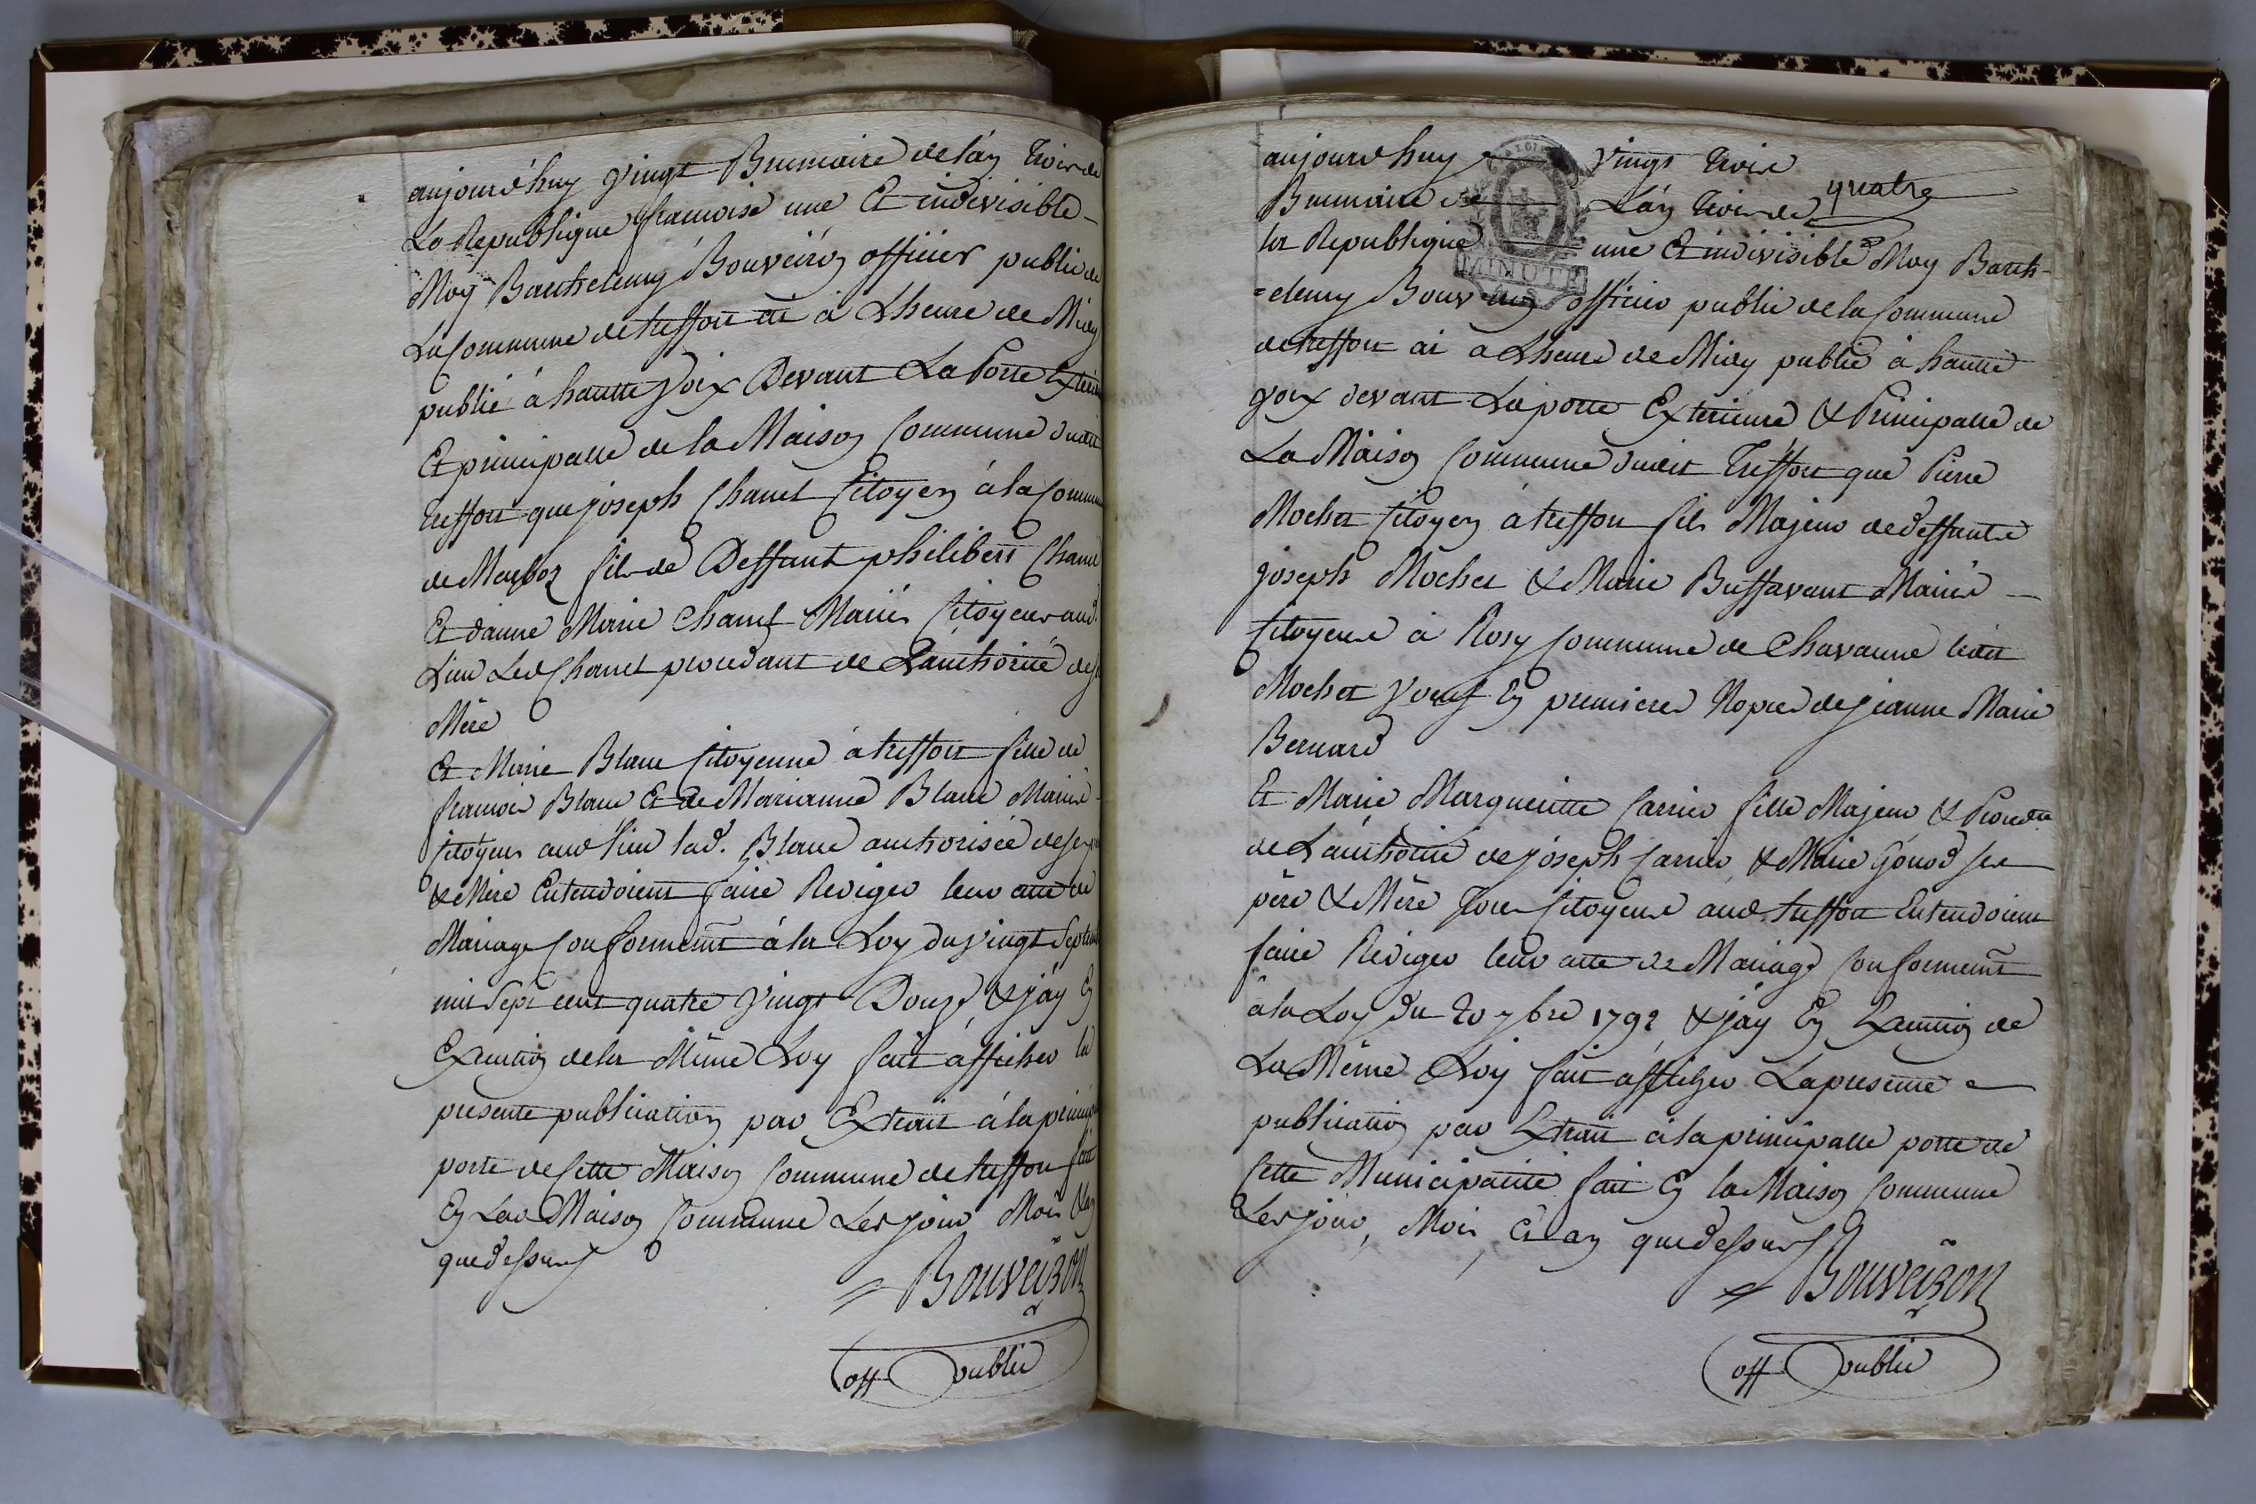 aujourd'huy vingt Brumaire de l'an trois de
La Republique francoise une Et indivisible
Moy Barthelemy Bouveiron officier public de
La Commune de treffort ai à L'heure de Midy
publié à hautte voix Devant La Porte Exterieure
Et principalle de la Maison Commune dudit
treffort que joseph Chanel Citoyen à la Commune
de Marboz fils de Deffunt philibert Chanel
Et d'anne Marie Chanel Mariés Citoyens aud.
Lieu Led Chanel procedant de L'authorité de sa
Mère
Et Marie Blanc Citoyenne à treffort fille de
francois Blanc Et de Marianne Blanc Mariés
Citoyens aud lieu lad. Blanc authorisée de ses père
& Mère Entendoient faire Rediger leur acte de
Mariage Conformemt à la Loy du vingt Septembre
mil Sept cent quatre vingt Douze, & j'ay En
Execution de la Même Loy fait afficher la
presente publication par Extrait à la principale
porte de Cette Maison Commune de treffort fait
En Lad Maison Commune Les jour Mois & an
que dessus
Bouveiron
off public
aujourd'huy vingt trois
Brumaire de L'an trois de quatre
la Republique une Et indivisible Moy Barth-
=elemy Bouveiron officier public de la Commune
de treffort ai a L'heure de Midy publié à hautte
voix devant La porte Exterieure & Principalle de
La Maison Commune dudit Treffort que Pierre
Mochet Citoyen à treffort fils Majeur de deffunts
joseph Mochet & Marie Buffavant Mariés
Citoyens à Rosy Commune de Chavanne ledit
Mochet veuf En premieres Nopces de jeanne Marie
Bernard
Et Marie Margueritte Carrier fille Majeur & Procedte
de L'authorité de joseph Carrier, & Marie Gonod ses
père & Mère tous Citoyens aud. treffort Entendoient
faire Rediger leur acte de Mariage Conformemt
à la Loy du 20 7bre 1792 & j'ay En Execution de
La Même Loy fait afficher La presente
publication par Extrait à la principalle porte de
Cette Municipalité fait En la Maison Commune
Les jour, Mois, Et an que dessus
Bouveiron
off public
MINUTE